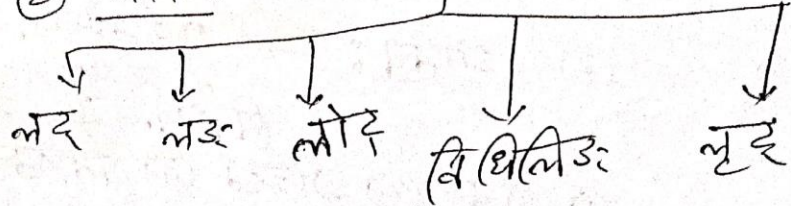 लट् लङ् लोट् विधिलिङ् लृट्